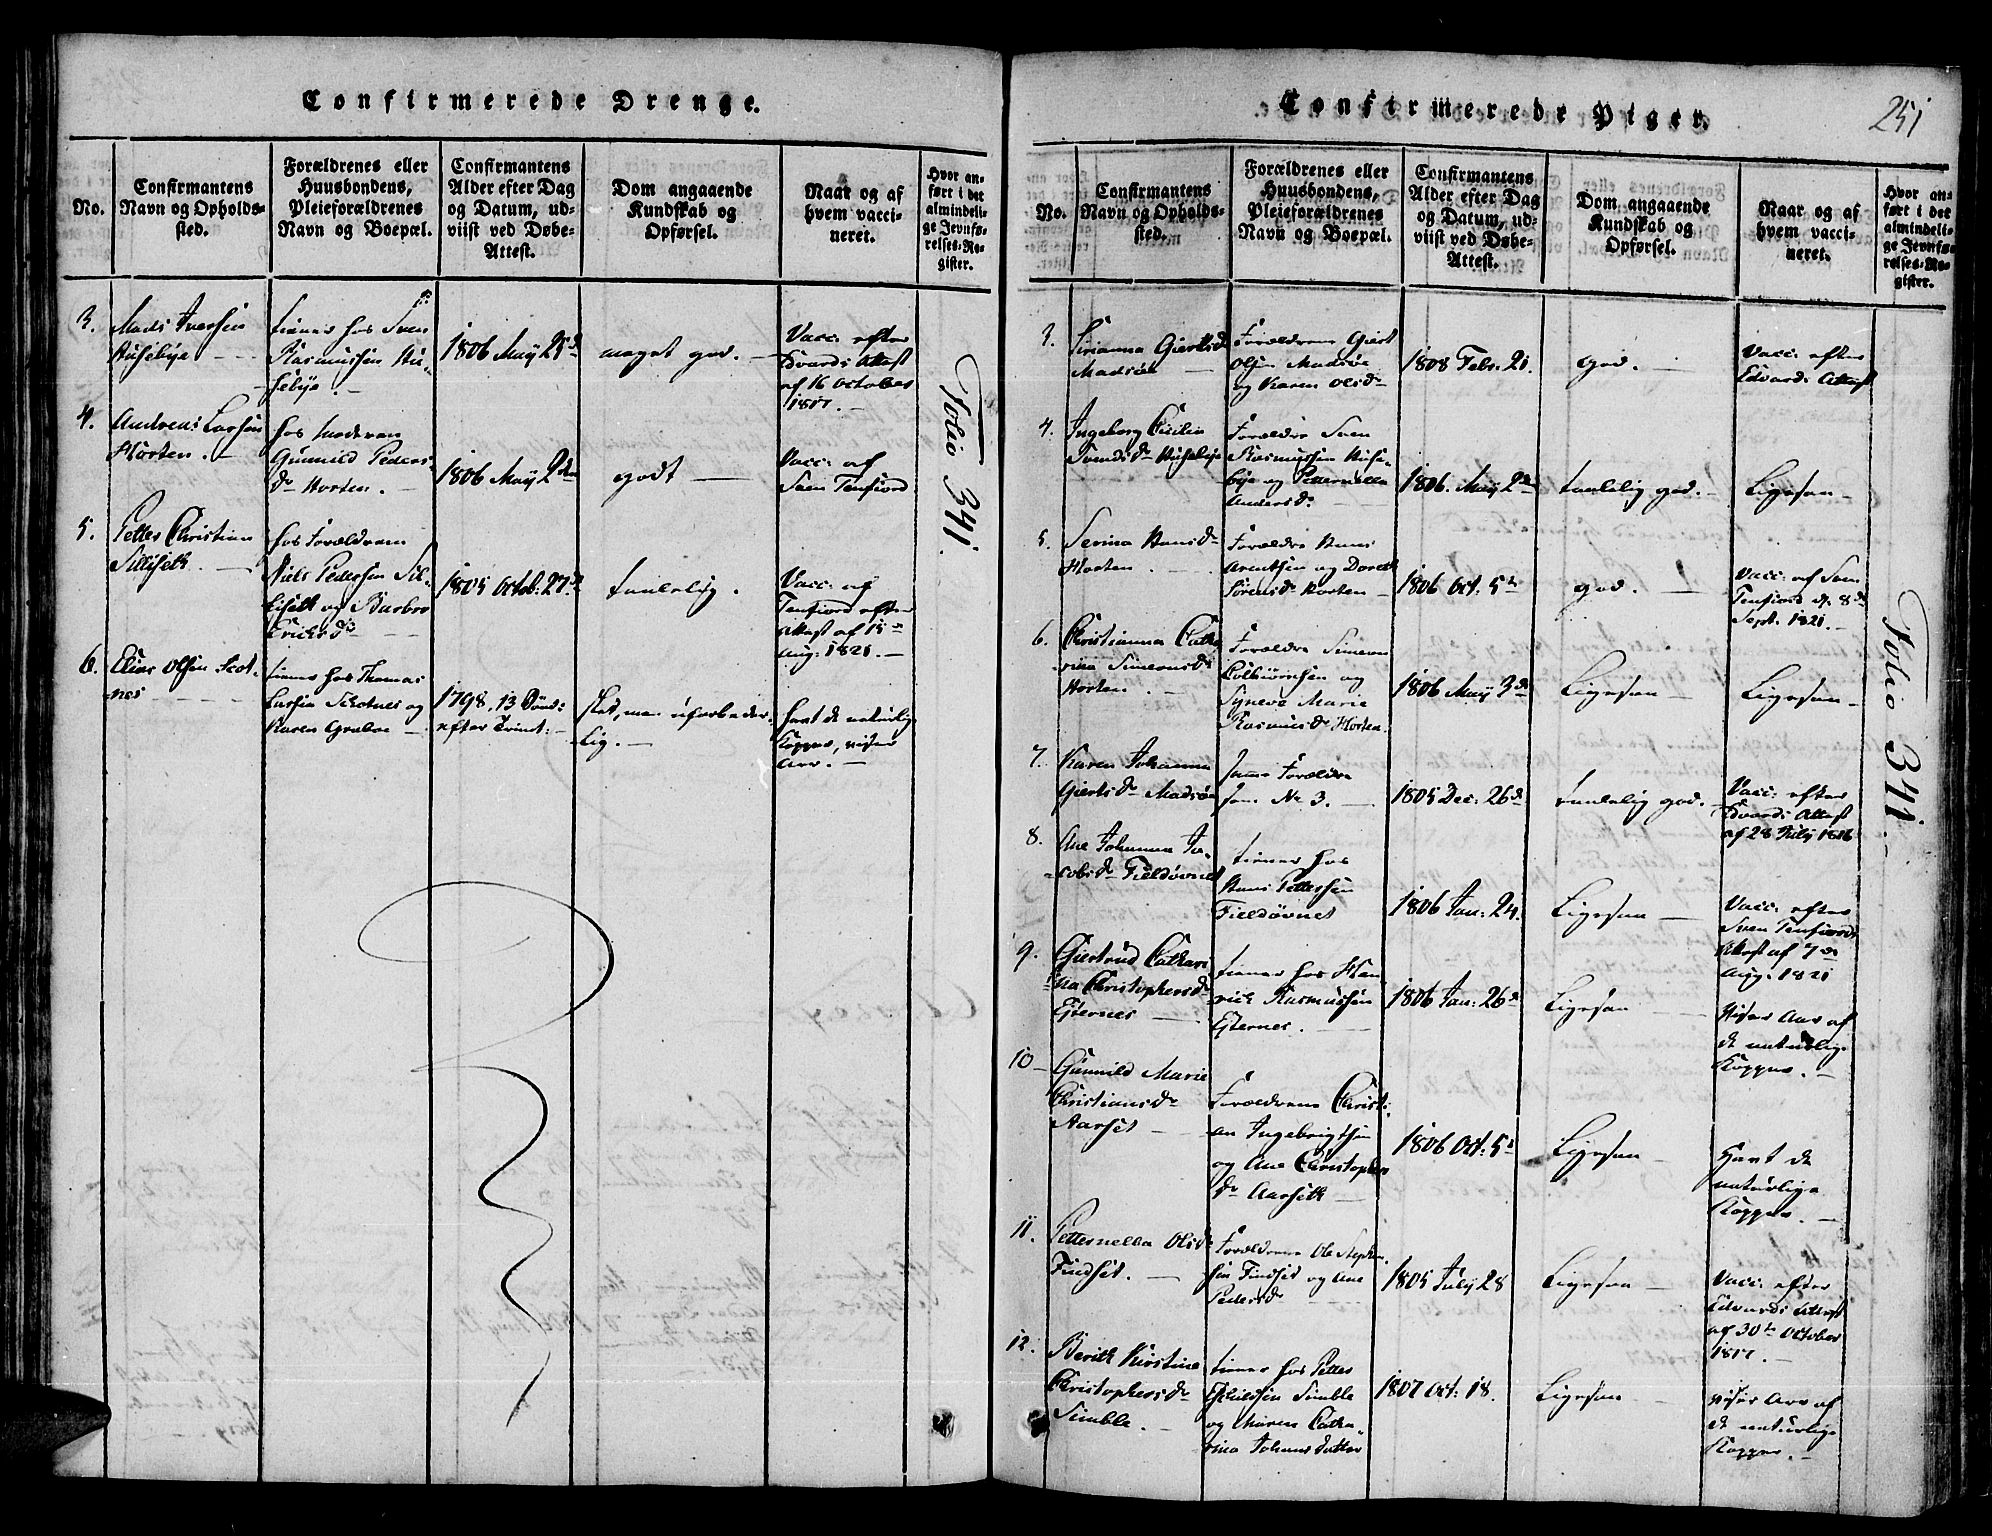 Confirmerede Drenge.
No.
Confirmantens
Navn og Opholds-
sted.
Forældrenes eller
Huusbondens,
Pleieforældrenes
Navn og Boepæl.
Confirmantens
Alder efter Dag
og Datum, ud-
viist ved Døbe-
Attest.
Dom angaaende
Kundskab og
Opførsel.
Naar og af
hvem vacci-
neret.
Hvor an-
ført i det
almindeli-
ge Jevnfø-
relses-Re-
gister.
3.
Mads Iversen
Husebye
tiener hos Sven
Rasmussen Hu-
sebye.
1806 May 25de
meget god.
Vacc: efter
Edvards Attest
af 16 October
1817.
4.
Andreas Larsen
Horten.
hos Moderen
Gunnild Peders-
Dr Horten.
1806 May 2den
godt
Vacc: af
Sven Tenfiord
5.
Petter Christian
Sillisett
hos Forældrene
Niels Pedersen Sil-
lisett og Barbro
Erichs Dr
1805 Octob: 27de
taalelig.
Vacc: af
Tenfiord efter
Attest af 15de
Aug: 1821.
6.
Elias Olsen Scot-
nes
tiener hos Thomas
Larsen Scotnes og
Karen Graboe
1798. 13 Sønd:
efter Trinit:
slet, men uforbeder-
lig.
havt de naturlig
Kopper, viser
Arr.
Folio 341.
Confirmerede Piger.
251
No.
Confirmantens
Navn og Opholds-
sted.
Forældrenes eller
Huusbondens,
Pleieforældrenes
Navn og Boepæl.
Confirmantens
Alder efter Dag
og Datum, ud-
viist ved Døbe-
Attest.
Dom angaaende
Kundskab og
Opførsel.
Naar og af
hvem vacci-
neret.
Hvor an-
ført i det
almindeli-
ge Jevnfø-
relses-Re-
gister.
3.
Sirianna Giertsdr
Madsøe
Forældrene Giert
Olsen Madsøe
og Karen Olsdr
1808 Febr: 21.
god.
Vacc: efter
Edvards Attest
4.
Ingeborg Cicilia
Svends Dr Husebye
Forældre Sven
Rasmussen Huse-
bye og Petternella
Andersdr
1806. May 2de
taalelig god.
Ligesaa
5.
Serina Hansdr
Horten
Forældre Hans
Arentsen og Doreth
Sørens dr Horten
1806 Oct: 5te
god.
Vacc: af Sven
Tenfiord d. 8de
Sept: 1821.
6.
Christianna Catha-
rina Simensdr
Horten
Forældre Simon
Colbiørnsen og
Syneve Marie
Rasmusdr Horten.
1806 May 3de
Ligesaa
Ligesaa
7.
Karen Johanna
Gierts dr Madsøe
Samme Forældre
som No 3.
1805 Dec: 26de
taalelig god.
Vacc: efter
Edvards Attest
af 28 July 1816
8.
Ane Johanna Ja-
cobs dr Fieldøvnet
tiener hos
Hans Pettersen
Fieldøvnet
1806 Jan: 24.
Ligesaa
Vacc: efter
Sven Tenfiords
Attest af 7de
Aug: 1821
9.
Giertrud Cathari
na Christophersdr
Esternes
tiener hos Hen-
rich Rasmussen
Esternes.
1806 Jan: 26de
Ligesaa
Viser Arr af
de naturlige
Kopper.
10
Gunnild Marie
Christiansdr
Aarset
Forældrene Christi-
an Ingebrigtsen
og Ane Christophers
dr Aarseth
1806 Oct: 5te
Ligesaa
Havt de
naturlige
Kopper.
11.
Petternella Olsdr
Findset.
Forældrene Ole Stephen-
sen Findset og Ane
Pedersdr
1805 July 28
Ligesaa
Vacc: efter
Edvards Attest
af 30te October
1817.
12.
Berith Kirstine
Christophersdr
Simble.
tiener hos Petter
Eskildsen Simble
og Maren Catha-
rina Johansdatter
1807 Oct: 18.
Ligesaa
viser Arr af
de naturlige
Kopper.
Folio 341.